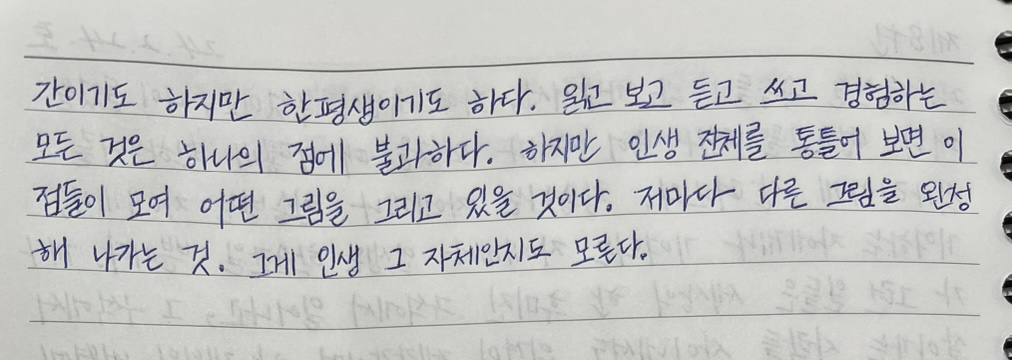 간이기도 하지만 한평생이기도 하다. 읽고 보고 듣고 쓰고 경험하는
모든 것은 하나의 점에 불과하다. 하지만 인생 전체를 통틀어 보면 이
점들이 모여 어떤 그림을 그리고 있을 것이다. 저마다 다른 그림을 완성
해 나가는 것. 그게 인생 그 자체인지도 모른다.